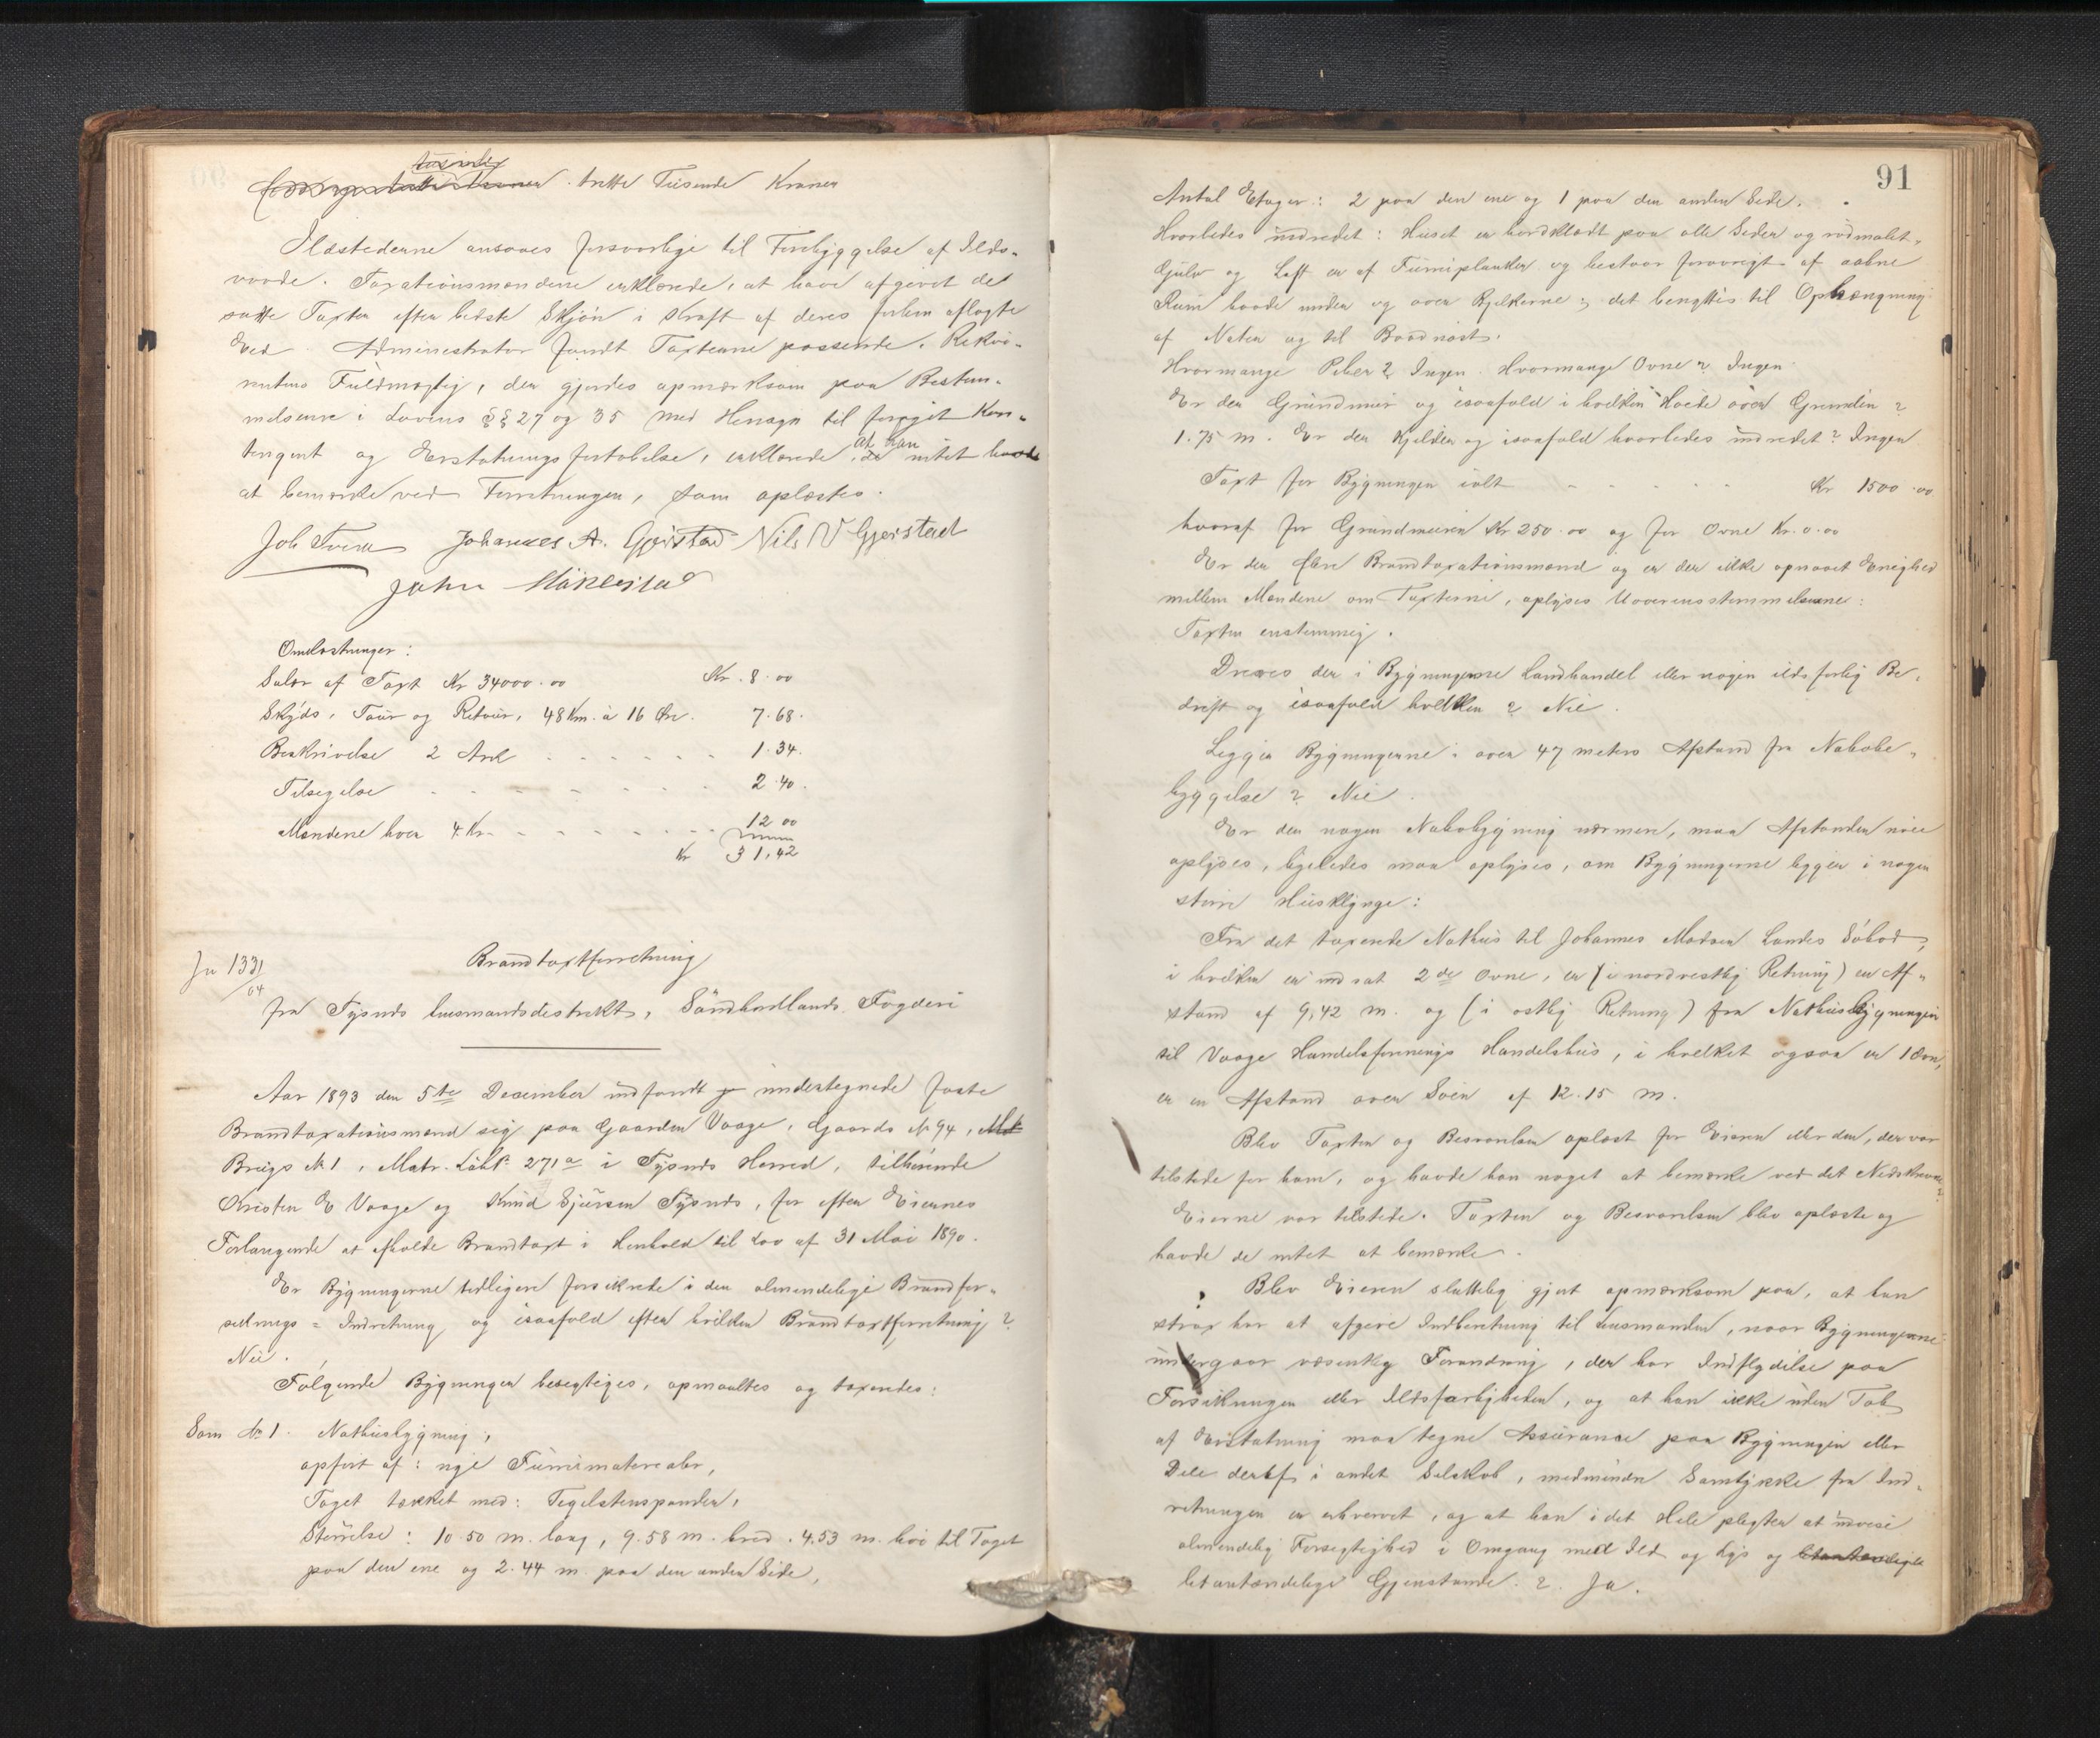 tretti Tusende Kroner
Ildstederne ansaaes forsvarlige til Forebyggelse af Ilds-
vaade. Taxationsmændene erklærede, at have afgivet det
satte Taxter efter bedste Skjön i Kraft af deres forhen aflagte
Ed. Administrator fandt Taxterne passende. Rekvi-
rentens Fuldmægtig, der gjordes opmærksom paa Bestem-
melserne i Lovens §§ 27 og 35 med Hensyn til forøget Kon-
tingent og Erstatnings fortabelse, erklærede, at han intet havde
at bemærke ved Forretningen, som oplæstes.
Johannes A. Gjerstad Nils N Gjerstad
John
Omkostninger:
Salær af Taxt Kr 34000.00 Kr. 8.00
Skyds, Tour og Retour, 48 Km. à 16 Øre. 7.68.
Beskrivelse 2 Ark 1.34.
Tilsigelse 2.40.
Mændene hver 4 Kr. 12 00
Kr 31,42
Jn 1331/64
Brandtaxtforretning
fra Tysnes lensmandsdistrikt, Söndhordlands Fogderi
Aar 1893 den 5te December indfandt undertegnede faste
Brandtaxationsmænd sig paa Gaarden Vaage, Gaards No 94,
Brugs No 1, Matr. Löbe No 271a i Tysnes Herred, tilhörende
Kristen E Vaage og Knud Sjursen Tysnes, for efter Eiernes
Forlangende at afholde Brandtaxt i Henhold til Lov af 31 Mai 1890.
Er Bygningerne tidligere forsikrede i den almindelige Brandfor-
sikrings-Indretning og isaafald efter hvilken Brandtaxtforretning?
Nei.
Fölgende Bygninger besigtiges, opmaaltes og taxeredes:
Som No 1. Nothusbygning,
opfört af: nye Furumaterialer,
Taget tækket med: Teglstenspander,
Störrelse: 10.50 m. lang, 9.58 m. bred. 4.53 m. höi til Taget
paa den ene og 2.44 m. paa den anden Side,
91
Antal Etager: 2 paa den ene og 1 paa den anden Side.
Hvorledes indredet: Huset er bordklædt paa alle Sider og rödmalet,
Gulv og Loft er af Furuplanker og bestaar forövrigt af aabne
Rum baade under og over Bjelkerne; det benyttes til Ophængning
af Nøter og til Baadnöst.
Hvormange Piber? Ingen. Hvormange Ovne? Ingen
Er der Grundmur og isaafald i hvilken Høide over Grunden?
1.75 m. Er der Kjelder og isaafald hvorledes indredet? Ingen
Taxt for Bygningen ialt Kr 1500.00
hvoraf for Grundmuren Kr. 250.00 og for Ovne Kr. 0.00
Er der flere Brandtaxationsmænd og er der ikke opnaaet Enighed
mellem Mændene om Taxterne, oplyses Uoverensstemmelserne:
Taxten enstemmig.
Drives der i Bygningerne Landhandel eller nogen ildsfarlig Be-
drift og isaafald hvilken? Nei.
Ligger Bygningerne i over 47 meters Afstand fra Nabobe-
byggelse? Nei.
Er der nogen Nabobygning nærmere, maa Afstanden nøie
oplyses, ligeledes maa oplyses, om Bygningerne ligger i nogen
större Husklynge:
Fra det taxerede Nothus til Johannes Madsen Landes Söbod,
i hvilken er indsat 2de Ovne, er (i nordvestlig Retning) en Af-
stand af 9,42 m. og (i ostlig Retning) fra Nothusbygningen
til Vaage Handelsforenings Handelshus, i hvilket ogsaa er 1 Ovn,
er en Afstand over Söen af 12.15 m.
Blev Taxten og Besvarelsen oplæst for Eieren eller den, der var
tilstede for ham, og havde han noget at bemærke ved det Nedskrevne?
Eierne var tilstede. Taxten og Besvarelsen blev oplæste og
havde de intet at bemærke.
Blev Eieren sluttelig gjort opmærksom paa, at han
strax har at afgive Indberetning til Lensmanden, naar Bygningerne
undergaar væsentlig Forandring, der har Indflydelse paa
Forsikringen eller Ildsfarligheden, og at han ikke uden Tab
af Erstatning maa tegne Assurance paa Bygningen eller
Dele deraf i andet Selskab, medmindre Samtykke fra Ind-
retningen er erhvervet, og at han i det Hele pligter at udvise
almindelig Forsigtighed i Omgang med Ild og Lys og
letantændelige Gjenstande.? Ja.